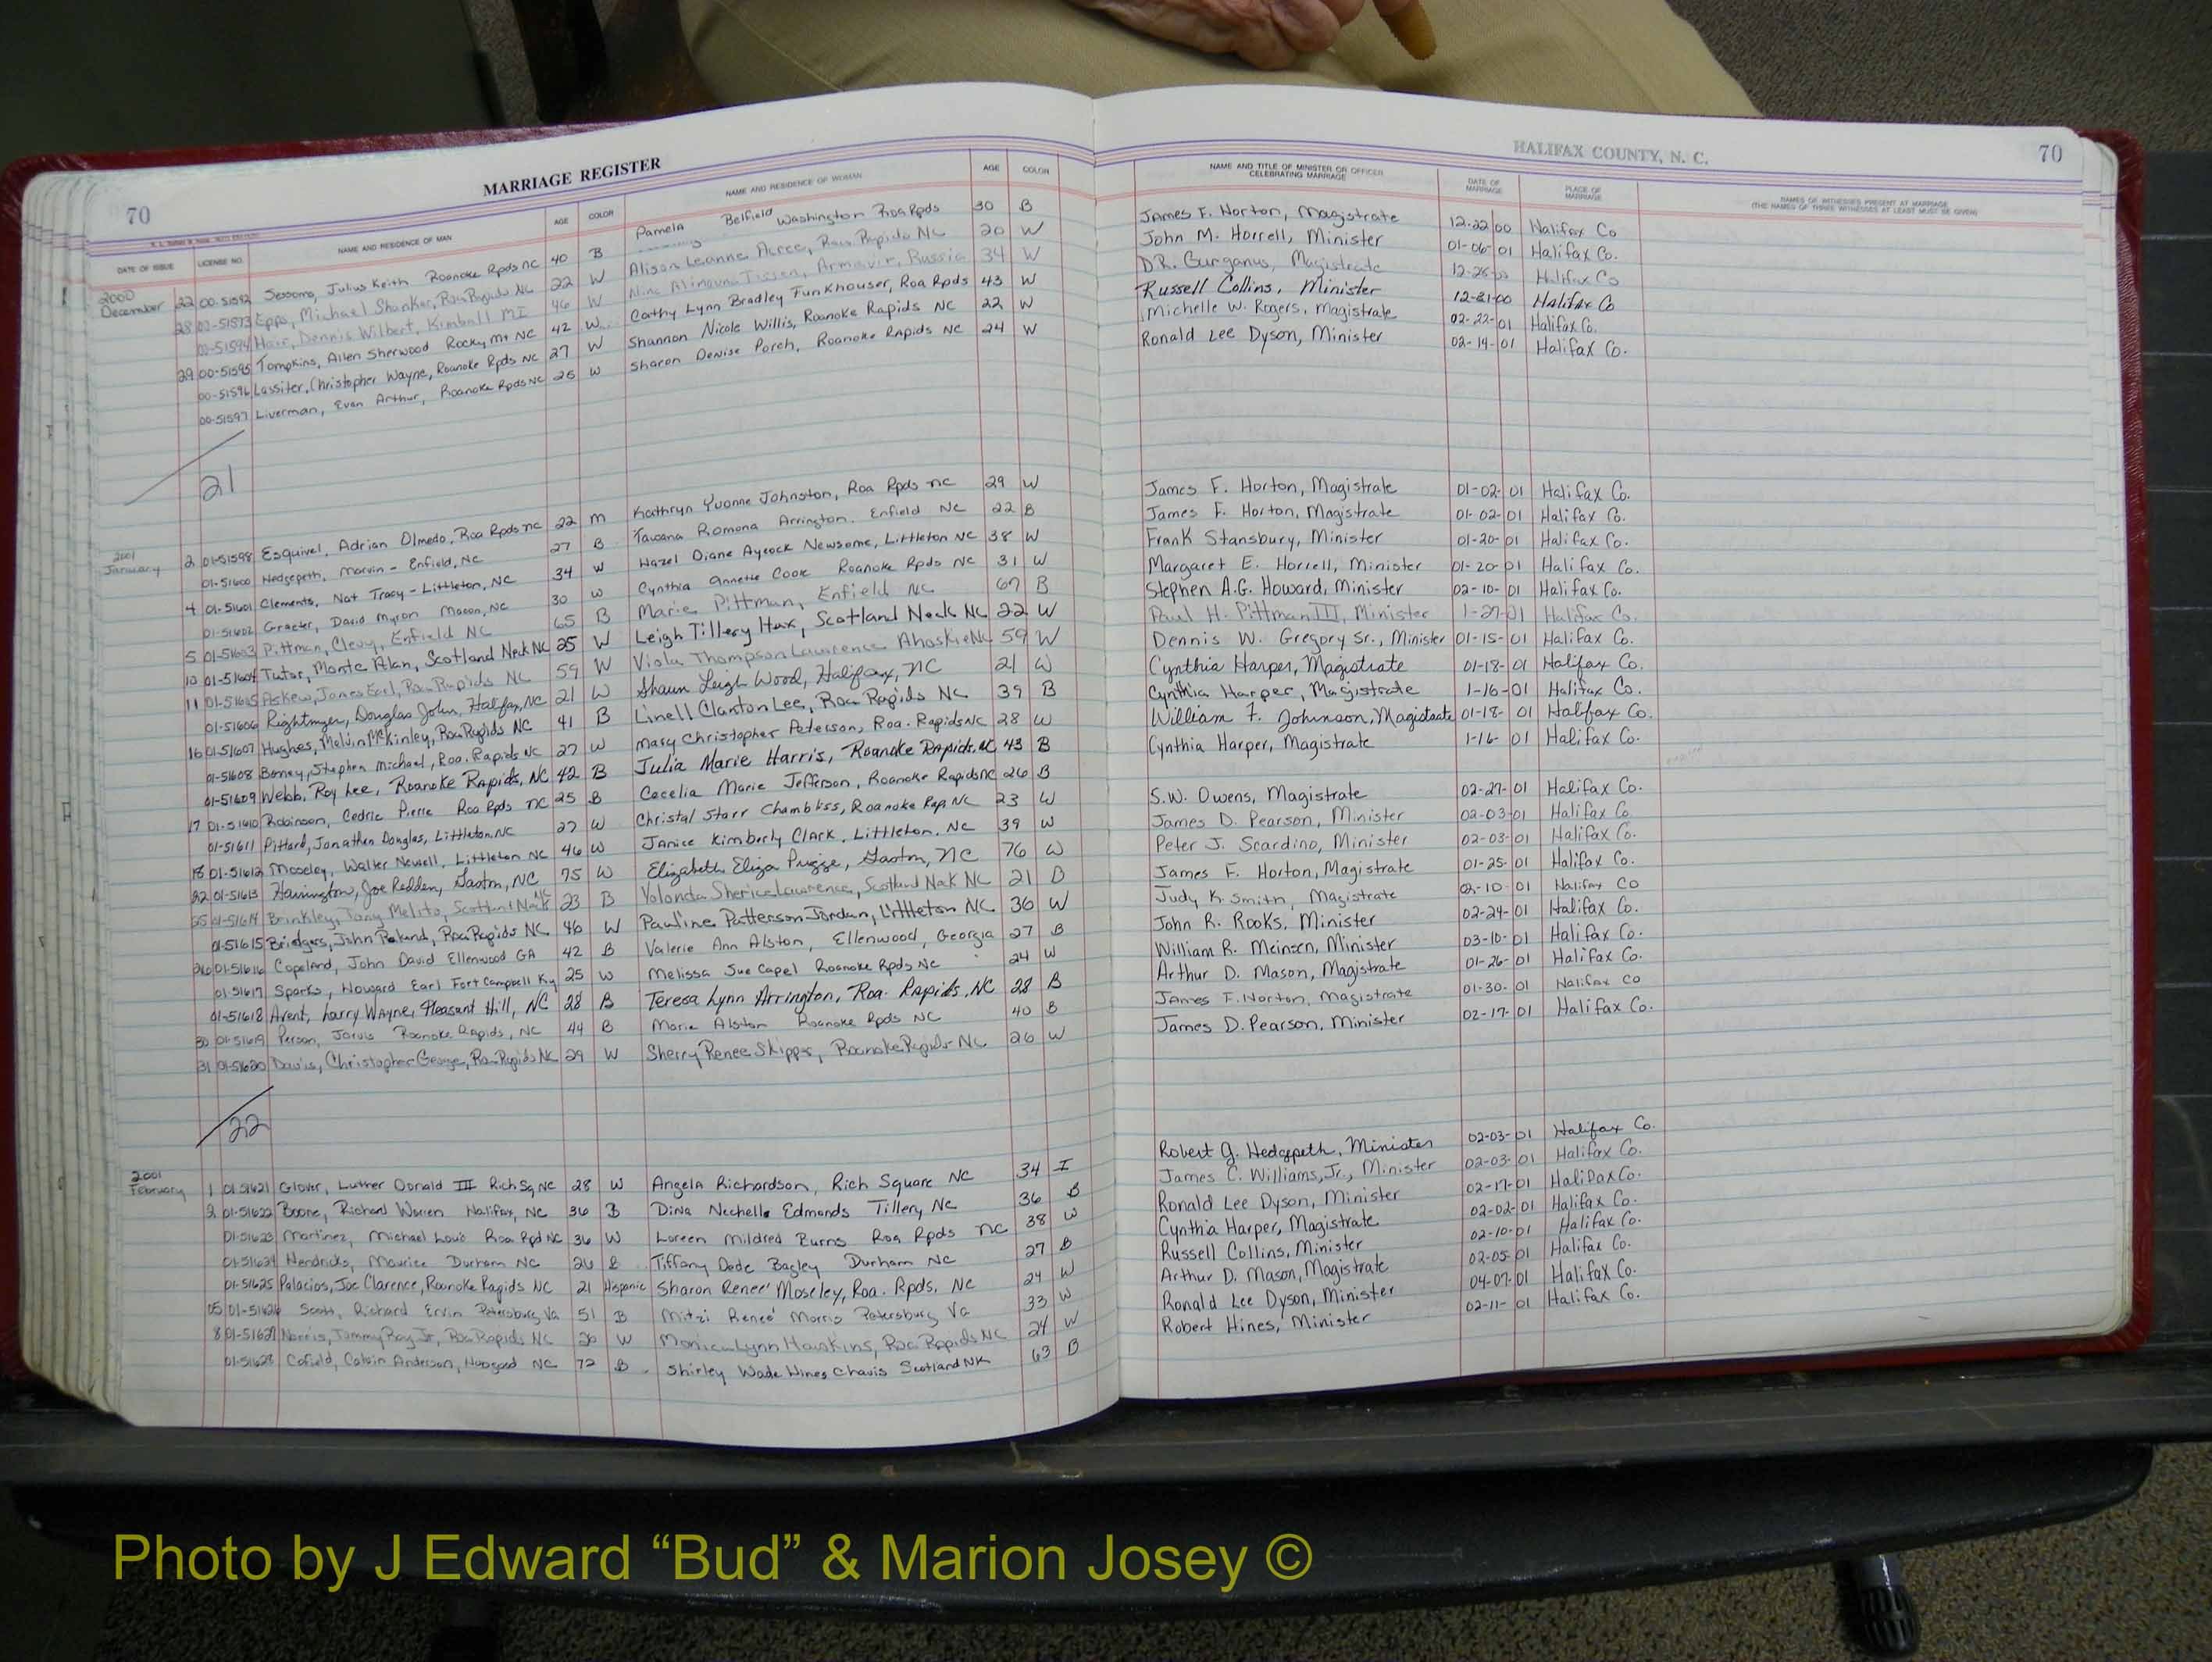 MARRIAGE REGISTER
HALIFAX COUNTY, N. C.
70
70
DATE OF ISSUE LICENSE NO. NAME AND RESIDENCE OF MAN AGE COLOR NAME AND RESIDENCE OF WOMAN AGE COLOR NAME AND TITLE OF MINISTER OR OFFICER CELEBRATING MARRIAGE DATE OF MARRIAGE PLACE OF MARRIAGE NAMES OF WITNESSES PRESENT AT MARRIAGE (THE NAMES OF THREE WITNESSES AT LEAST MUST BE GIVEN)
2000 December 22 00-51592 Sessoms, Julius Keith Roanoke Rpds NC 40 B Pamela Belfield Washington Roa Rpds 30 B James F. Horton, Magistrate 12-22 00 Halifax Co
28 00-51593 Epps, Michael Shonker, Roa Rapids NC 22 W Alison Leanne Acree, Roa Rapids NC 20 W John M. Horrell, Minister 01-06-01 Halifax Co.
00-51594 Dennis Wilbert, Kimball MI 46 W Nina Armavir, Russia 34 W D.R. Gurganus, Magistrate Halifax Co
29 00-51595 Tompkins, Allen Sherwood Rocky Mt NC 42 W Cathy Lynn Bradley Funkhouser, Roa Rpds 43 W Russell Collins, Minister 12-31-00 Halifax Co
00-51596 Lassiter, Christopher Wayne, Roanoke Rpds NC 27 W Shannon Nicole Willis, Roanoke Rapids NC 22 W Michelle W. Rogers, Magistrate 02-22-01 Halifax Co.
00-51597 Liverman, Evan Arthur, Roanoke Rpds NC 26 W Sharon Denise Porch, Roanoke Rapids NC 24 W Ronald Lee Dyson, Minister 02-14-01 Halifax Co.
21
2001 January 2 01-51598 Esquivel, Adrian Olmedo, Roa Rpds NC 22 M Kathryn Yvonne Johnston, Roa Rpds NC 29 W James F. Horton, Magistrate 01-02-01 Halifax Co.
01-51600 Hedgepeth, Marvin - Enfield, NC 27 B Tawana Romona Arrington. Enfield NC 22 B James F. Horton, Magistrate 01-02-01 Halifax Co.
4 01-51601 Clements, Nat Tracy - Littleton, NC 34 W Hazel Diane Aycock Newsome, Littleton NC 38 W Frank Stansbury, Minister 01-20-01 Halifax Co.
01-51602 Graeter, David Myron Macon, NC 30 W Cynthia Annette Cook Roanoke Rpds NC 31 W Margaret E. Horrell, Minister 01-20-01 Halifax Co.
5 01-51603 Pittman, Clevy, Enfield NC 65 B Marie Pittman, Enfield NC 67 B Stephen A.G. Howard, Minister 02-10-01 Halifax Co.
10 01-51604 Tutor, Monte Alan, Scotland Neck NC 25 W Leigh Tillery Hux, Scotland Neck NC 22 W Paul H. Pittman III, Minister 1-27-01 Halifax Co.
11 01-51605 Askew, James Earl, Roa Rapids NC 59 W Viola Thompson Lawrence Ahoskie NC 59 W Dennis W. Gregory Sr., Minister 01-15-01 Halifax Co.
01-51606 Rightmyer, Douglas John, Halifax, NC 21 W Shaun Leigh Wood, Halifax, NC 21 W Cynthia Harper, Magistrate 01-18-01 Halifax Co.
16 01-51607 Hughes, Melvin McKinley, Roa Rapids NC 41 B Linell Clanton Lee, Roa Rapids NC 39 B Cynthia Harper, Magistrate 1-16-01 Halifax Co.
01-51608 Stephen Michael, Roa. Rapids NC 27 W Mary Christopher Peterson, Roa. Rapids NC 28 W William F. Johnson, Magistrate 01-18-01 Halifax Co.
01-51609 Webb, Roy Lee, Roanoke Rapids, NC 42 B Julia Marie Harris, Roanoke Rapids, NC 43 B Cynthia Harper, Magistrate 1-16-01 Halifax Co.
17 01-51610 Robinson, Cedric Pierre Roa Rpds NC 25 B Cecelia Marie Jefferson, Roanoke Rapids NC 26 B
01-51611 Pittard, Jonathan Douglas, Littleton, NC 27 W Christal Starr Chambliss, Roanoke Rap. NC 23 W S.W. Owens, Magistrate 02-27-01 Halifax Co.
18 01-51612 Moseley, Walter Newell, Littleton NC 46 W Janice Kimberly Clark, Littleton, NC 39 W James D. Pearson, Minister 02-03-01 Halifax Co
22 01-51613 Harrington, Joe Redden, Gaston, NC 75 W Elizabeth Eliza Pugge, Gaston, NC 76 W Peter J. Scardino, Minister 02-03-01 Halifax Co.
25 01-51614 Brinkley, Tony Melito, Scotland Neck NC 23 B Yolanda Sherice Lawrence, Scotland Neck NC 21 B James F. Horton, Magistrate 01-25-01 Halifax Co.
01-51615 Bridgers, John Roland, Roa Rapids NC 46 W Pauline Patterson Jordan, Littleton NC 36 W Judy K. Smith, Magistrate 02-10-01 Halifax Co
26 01-51616 Copeland, John David Ellenwood GA 42 B Valerie Ann Alston, Ellenwood, Georgia 27 B John R. Rooks, Minister 02-24-01 Halifax Co.
01-51617 Sparks, Howard Earl Fort Campbell Ky 25 W Melissa Sue Capel Roanoke Rpds NC 24 W William R. Meinsen, Minister 03-10-01 Halifax Co.
01-51618 Avent, Larry Wayne, Pleasant Hill, NC 28 B Teresa Lynn Arrington, Roa. Rapids, NC 28 B Arthur D. Mason, Magistrate 01-26-01 Halifax Co.
30 01-51619 Person, Jarvis Roanoke Rapids, NC 44 B Marie Alston Roanoke Rpds NC 40 B James F. Horton, Magistrate 01-30-01 Halifax Co
31 01-51620 Davis, Christopher George, Roa Rapids NC 29 W Sherry Renee Skipper, Roanoke Rapids NC 26 W James D. Pearson, Minister 02-17-01 Halifax Co.
22
2001 February 1 01-51621 Glover, Luther Donald III Rich Sq NC 28 W Angela Richardson, Rich Square NC 34 I Robert G. Hedgepeth, Minister 02-03-01 Halifax Co.
2 01-51622 Boone, Richard Warren Halifax, NC 36 B Dina Nechelle Edmonds Tillery, NC 36 B James C. Williams, Jr., Minister 02-03-01 Halifax Co.
01-51623 Martinez, Michael Louis Roa Rpd NC 36 W Loreen Mildred Burns Roa Rpds NC 38 W Ronald Lee Dyson, Minister 02-17-01 Halifax Co.
01-51624 Hendricks, Maurice Durham NC 26 B Tiffany Dade Bagley Durham NC 27 B Cynthia Harper, Magistrate 02-02-01 Halifax Co.
01-51625 Palacios, Joe Clarence, Roanoke Rapids NC 21 Hispanic Sharon Renee' Moseley, Roa. Rpds, NC 24 W Russell Collins, Minister 02-10-01 Halifax Co.
05 01-51626 Scott, Richard Ervin Petersburg, Va 51 B Mitzi Reneé Morris Petersburg Va 33 W Arthur D. Mason, Magistrate 02-05-01 Halifax Co.
8 01-51627 Norris, Tommy Ray Jr, Roa Rapids NC 20 W Monica Lynn Hawkins, Roa Rapids NC 24 W Ronald Lee Dyson, Minister 04-07-01 Halifax Co.
01-51628 Cofield, Calvin Anderson, Hobgood NC 72 B Shirley Wade Hines Chavis Scotland NK 63 B Robert Hines, Minister 02-11-01 Halifax Co.
Photo by J Edward “Bud” & Marion Josey ©